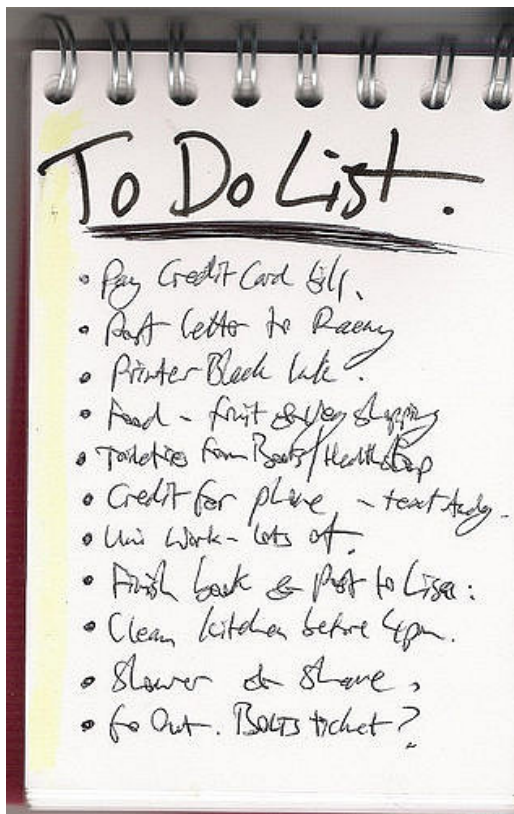 To Do List.
• Pay Credit Card bill.
• Post letter to
• Printer Black Ink.
• Food - fruit & veg shopping
• Toiletries from Boots/Healthshop
• Credit for phone - text Andy.
• Uni Work - lots of.
• Finish book & Post to Lisa.
• Clean kitchen before 4pm.
• Shower & Shave.
• Go Out. BOLTS ticket?